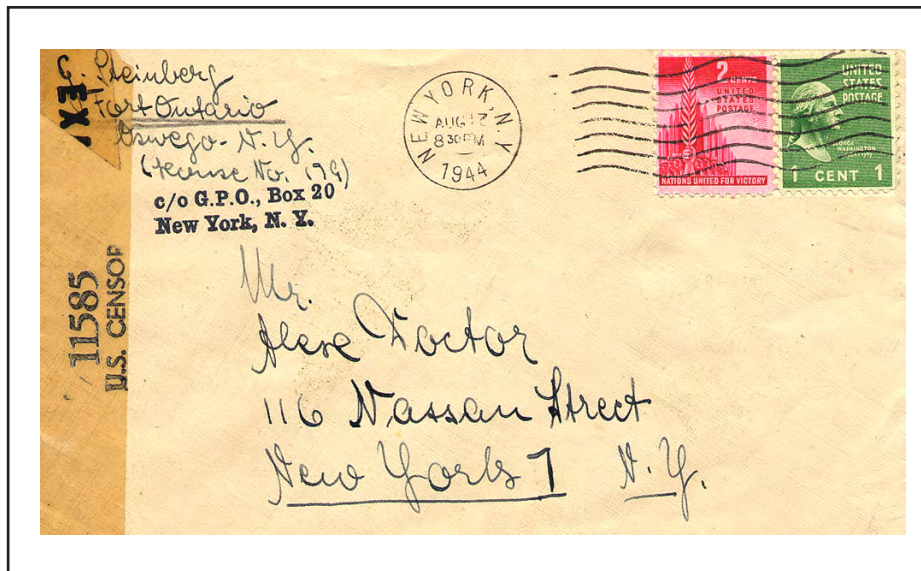 G. Steinberg
Fort Ontario
Oswego - N.Y.
(House No. 179)
c/o G.P.O., Box 20
New York, N. Y.
EX
11585
U.S. CENSOR
NEW YORK, N.Y.
AUG 17
8 30 PM
1944
2 CENTS
UNITED
STATES
POSTAGE
NATIONS UNITED FOR VICTORY
UNITED
STATES
POSTAGE
GEORGE
WASHINGTON
1 CENT 1
Mr.
Alexe Doctor
116 Nassau Street
New York 7 N.Y.